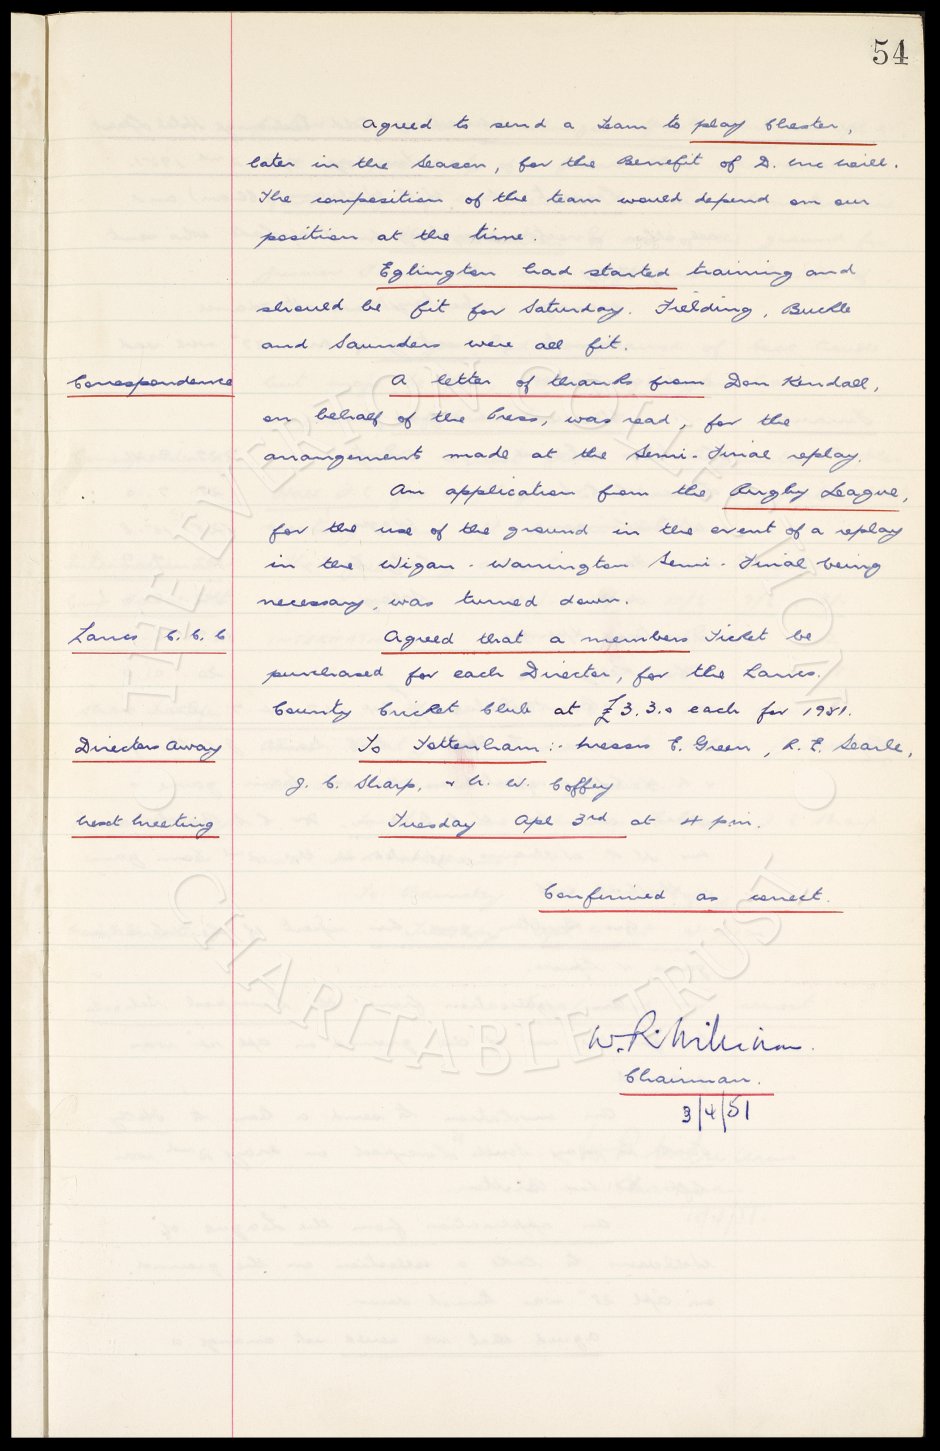 54
Agreed to send a team to play Chester,
later in the season, for the Benefit of D. McNeill.
The composition of the team would depend on our
position at the time.
Eglington had started training and
should be fit for Saturday. Fielding, Buckle
and Saunders were all fit.
Correspondence A letter of thanks from Don Kendall,
on behalf of the Press, was read, for the
arrangements made at the Semi-Final replay.
An application from the Rugby League,
for the use of the ground in the event of a replay
in the Wigan - Warrington Semi-Final being
necessary, was turned down.
Lancs C.C.C Agreed that a members Ticket be
purchased for each Director, for the Lancs.
County Cricket Club at £3.3.0 each for 1951.
Directors Away To Tottenham :- Messrs C. Green, R. E. Searle,
J. C. Sharp, & N. W. Coffey
Next Meeting Tuesday Apl 3rd at 4 pm.
Confirmed as correct.
W. R. Williams.
Chairman.
3/4/51
THE EVERTON COLLECTION
CHARITABLE TRUST